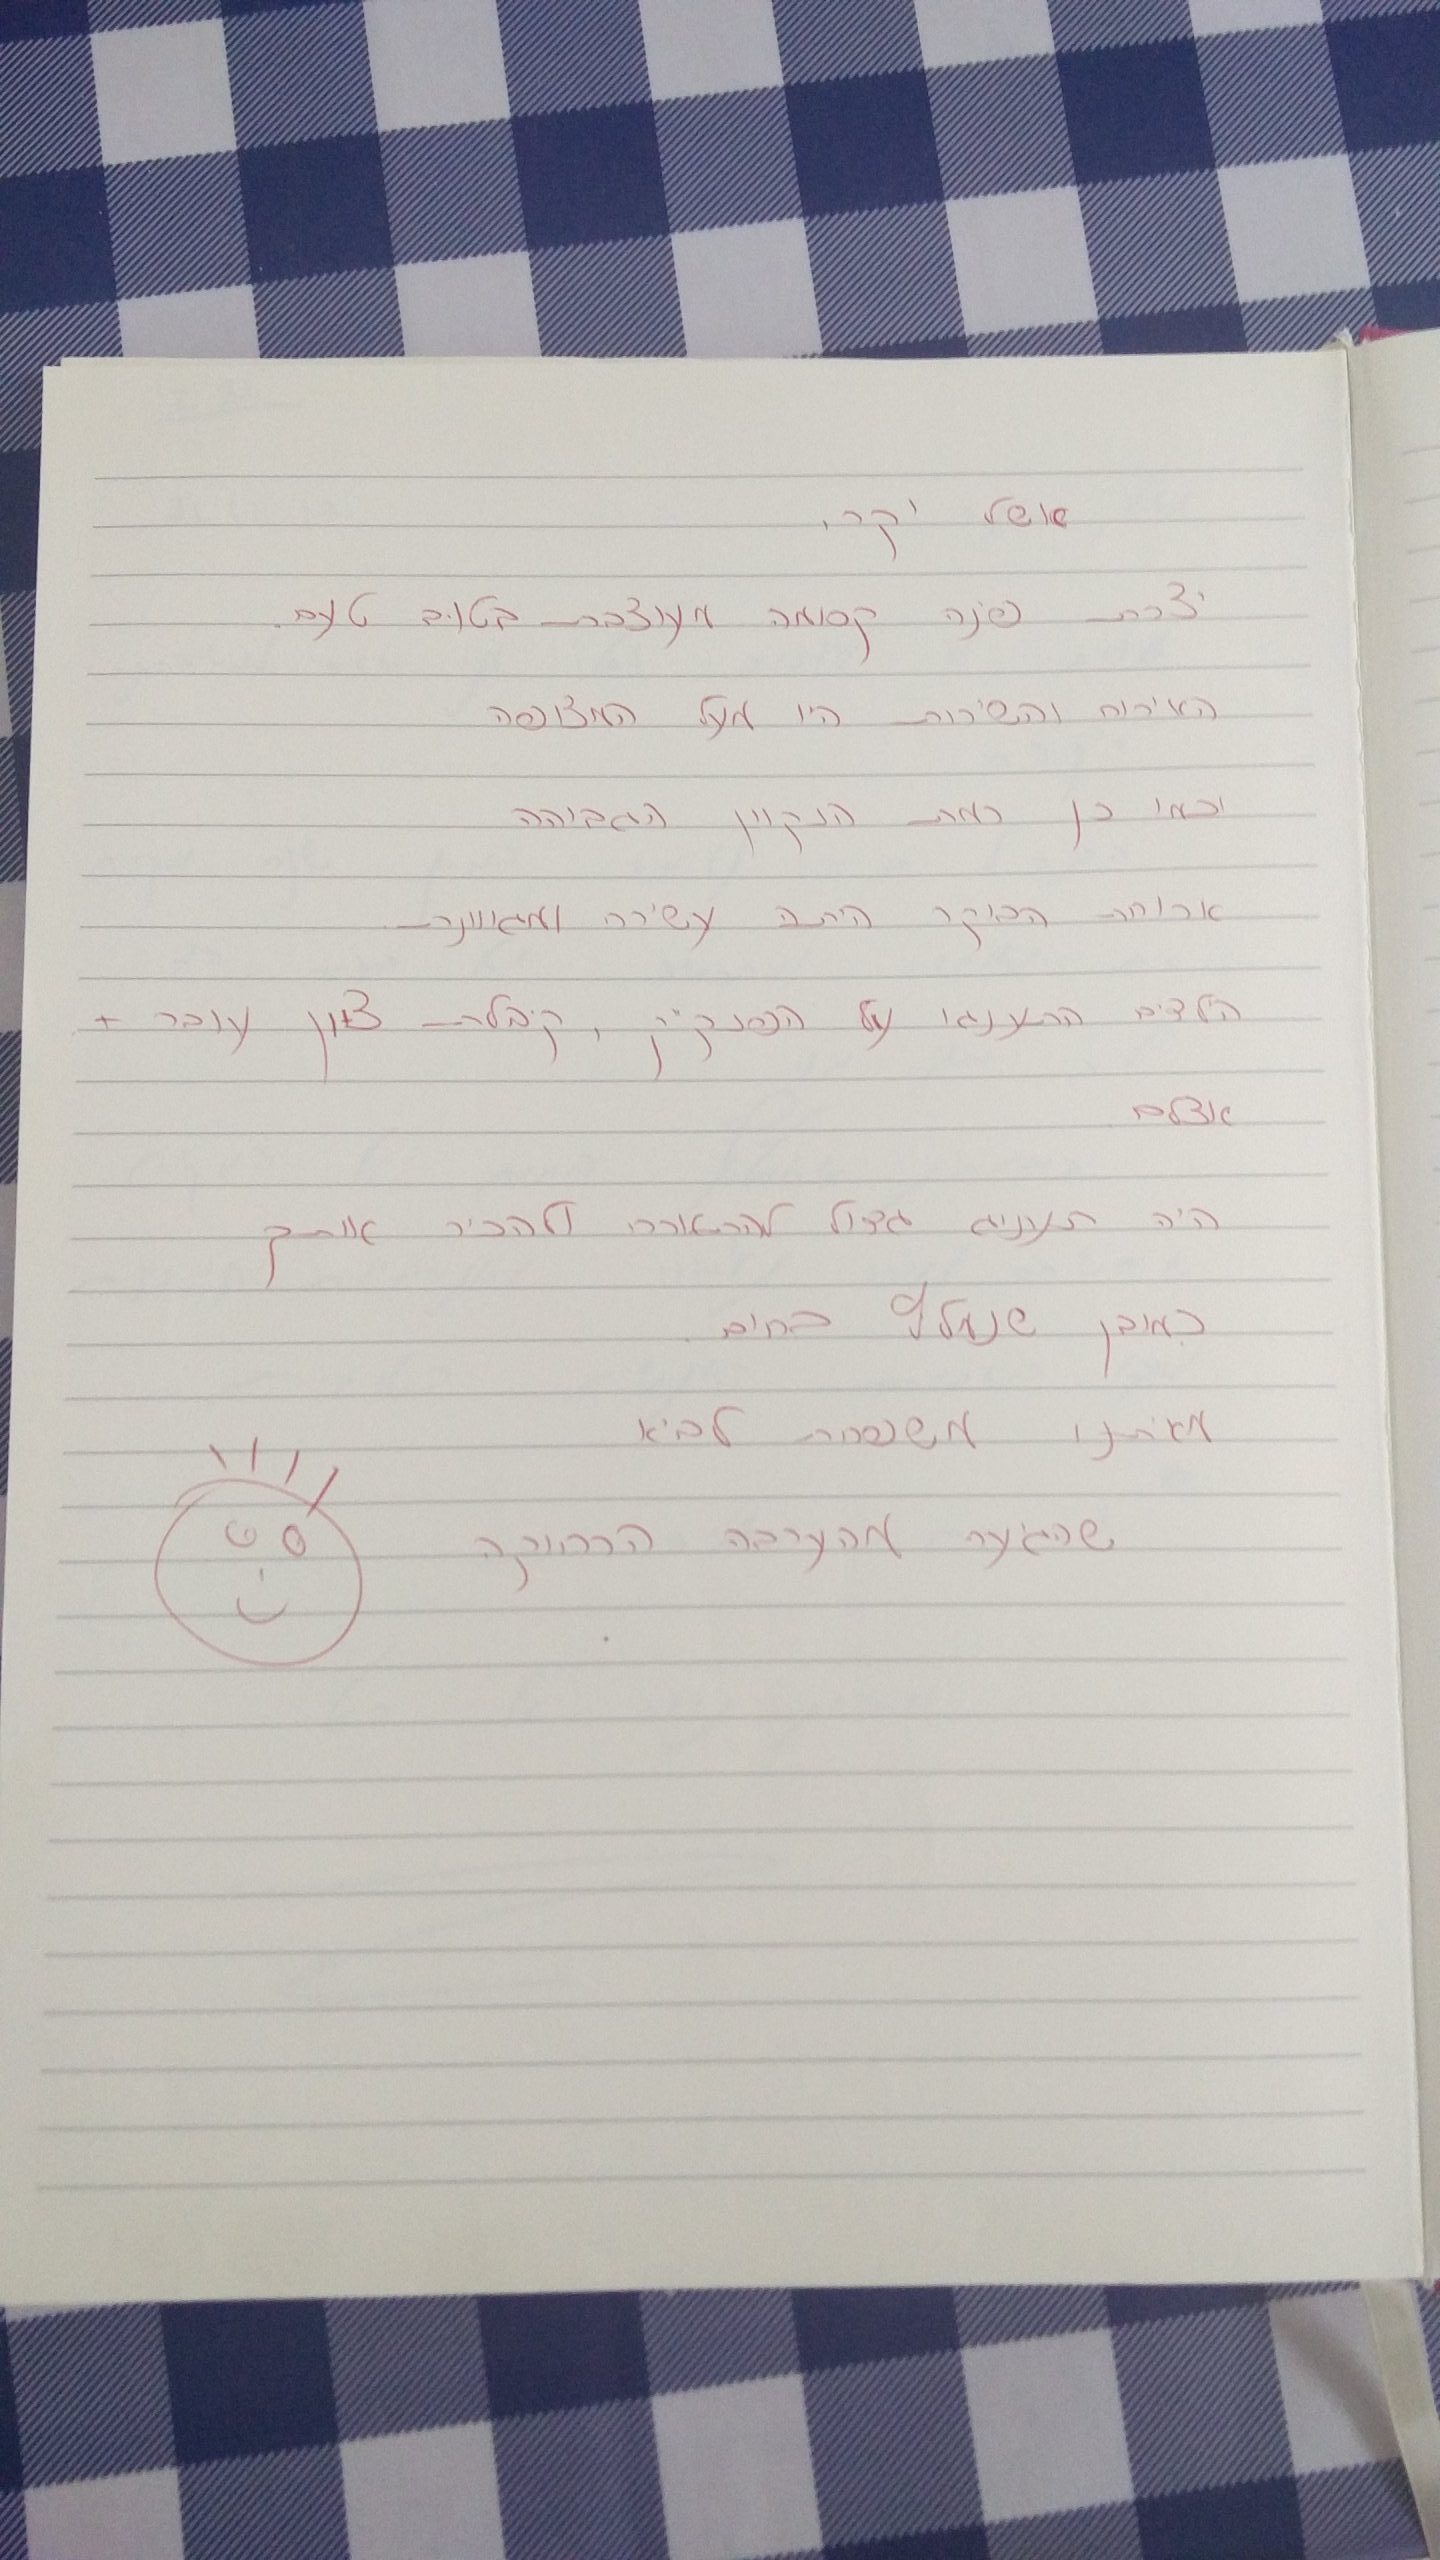 אשל יקר,
יצרת פינה קסומה מעוצבת בטוב טעם.
האירוח והשירות היו מעל המצופה
וכמו כן רמת הנקיון הגבוהה
ארוחת הבוקר היתה עשירה ומגוונת.
הילדים התענגו על הפנקייק, קיבלת ציון עובר +
אצלם
היה תענוג גדול להתארח ולהכיר אותך
כמובן שנמליץ בחום.
מאיתנו משפחת לביא
שהגיעה מהערבה הרחוקה